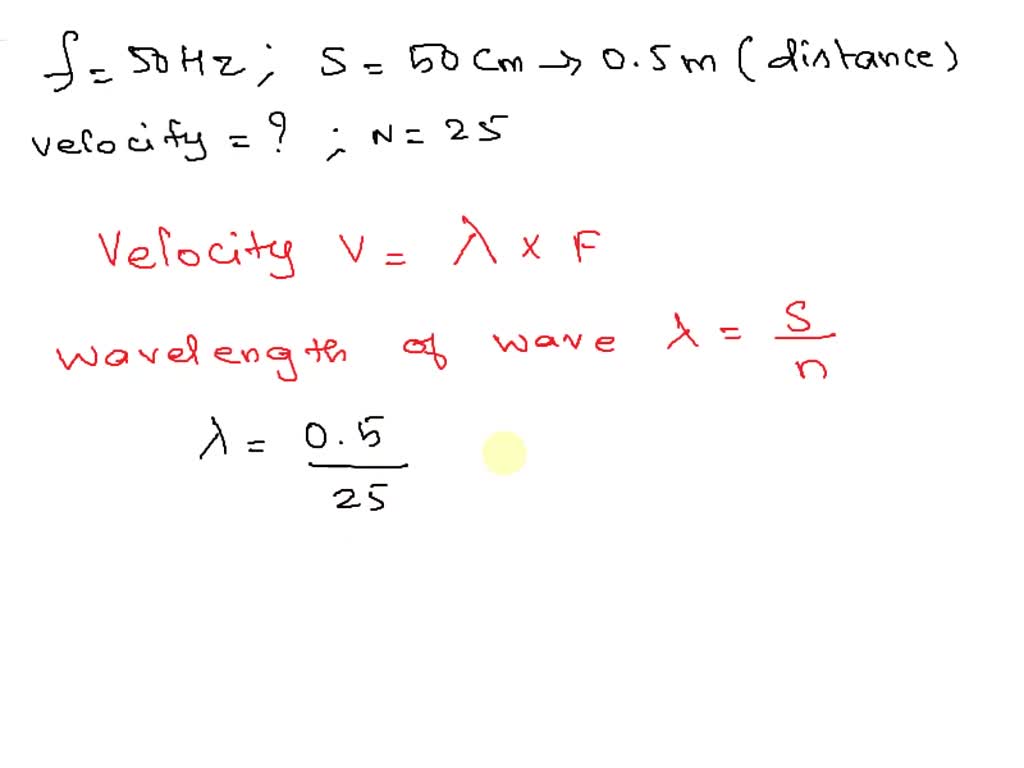 f = 50Hz; S = 50 Cm → 0.5m (distance)
velocity = ? ; N = 25
Velocity V = λ x F
wavelength of wave λ = S/n
λ = 0.5/25